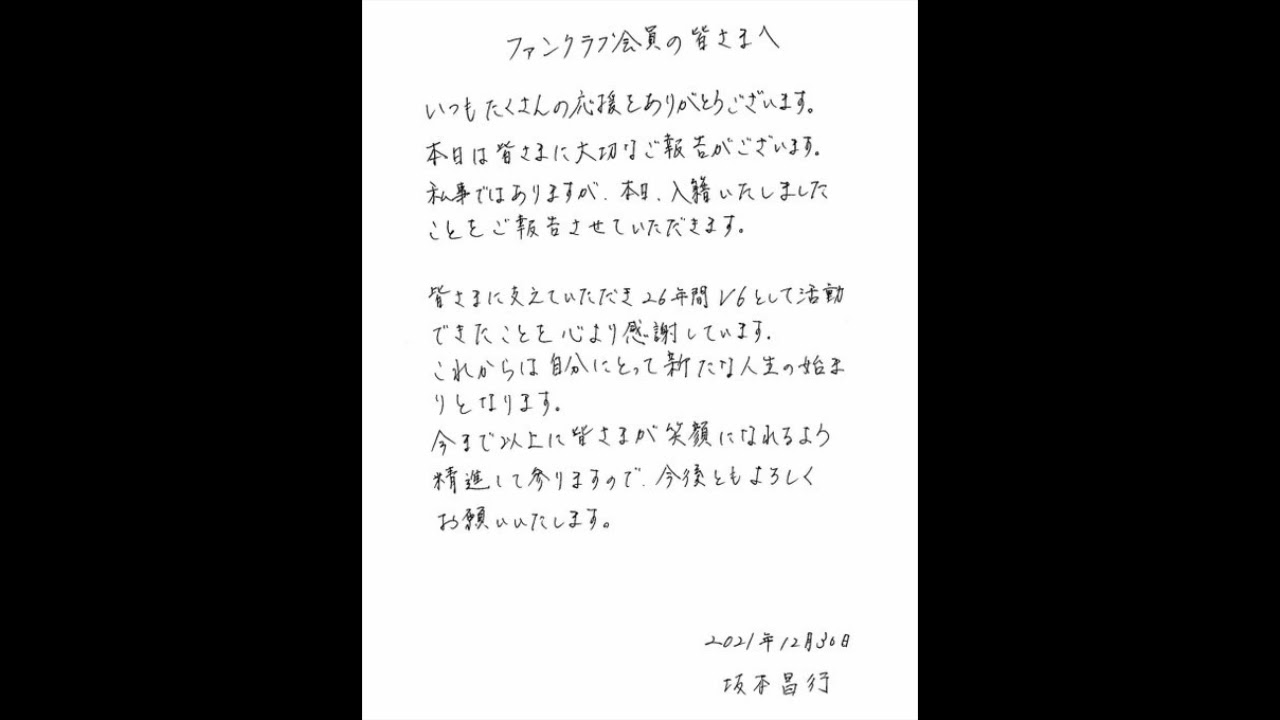 ファンクラブ会員の皆さまへ
いつもたくさんの応援をありがとうございます。
本日は皆さまに大切なご報告がございます。
私事ではありますが、本日、入籍いたしました
ことをご報告させていただきます。
皆さまに支えていただき26年間V6として活動
できたことを心より感謝しています。
これからは自分にとって新たな人生の始ま
りとなります。
今まで以上に皆さまが笑顔になれるよう
精進して参りますので、今後ともよろしく
お願いいたします。
2021年12月30日
坂本昌行